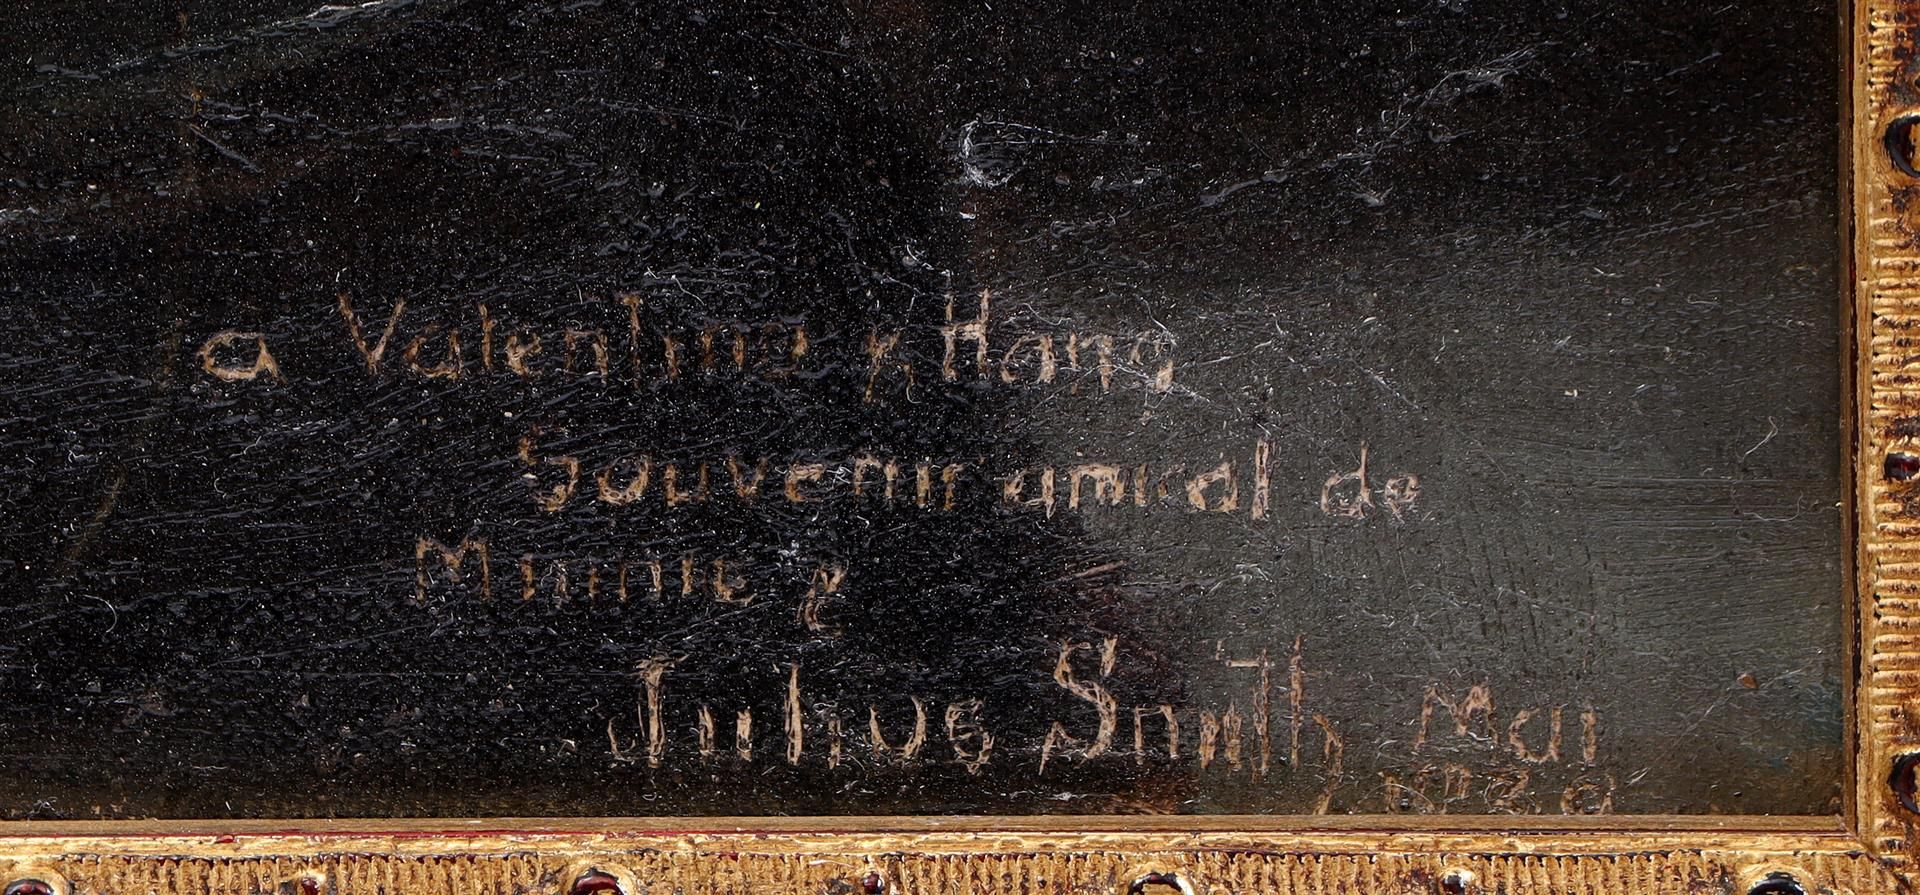 a Valentina y Hans
Souvenir amical de
Minnie &
Julius Smith Mai